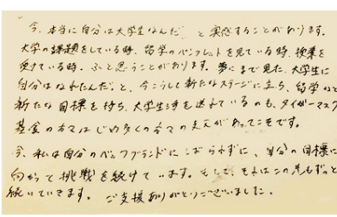 今、本当に自分は大学生なんだ、と実感することがあります。
大学の課題をしている時、留学のパンフレットを見ている時、授業を
受けている時、ふと思うことがあります。夢にまで見た大学生に
自分はなれたんだ、と。今こうして新たなステージに立ち、留学など
新たな目標を持ち、大学生活を送れているのも、タイガーマスク
基金の方をはじめ多くの方の支えがあってこそです。
今、私は自分のバックグランドにこだわらずに、自分の目標に
向かって挑戦を続けています。そして、それはこの先もずっと
続いていきます。ご支援ありがとうございました。